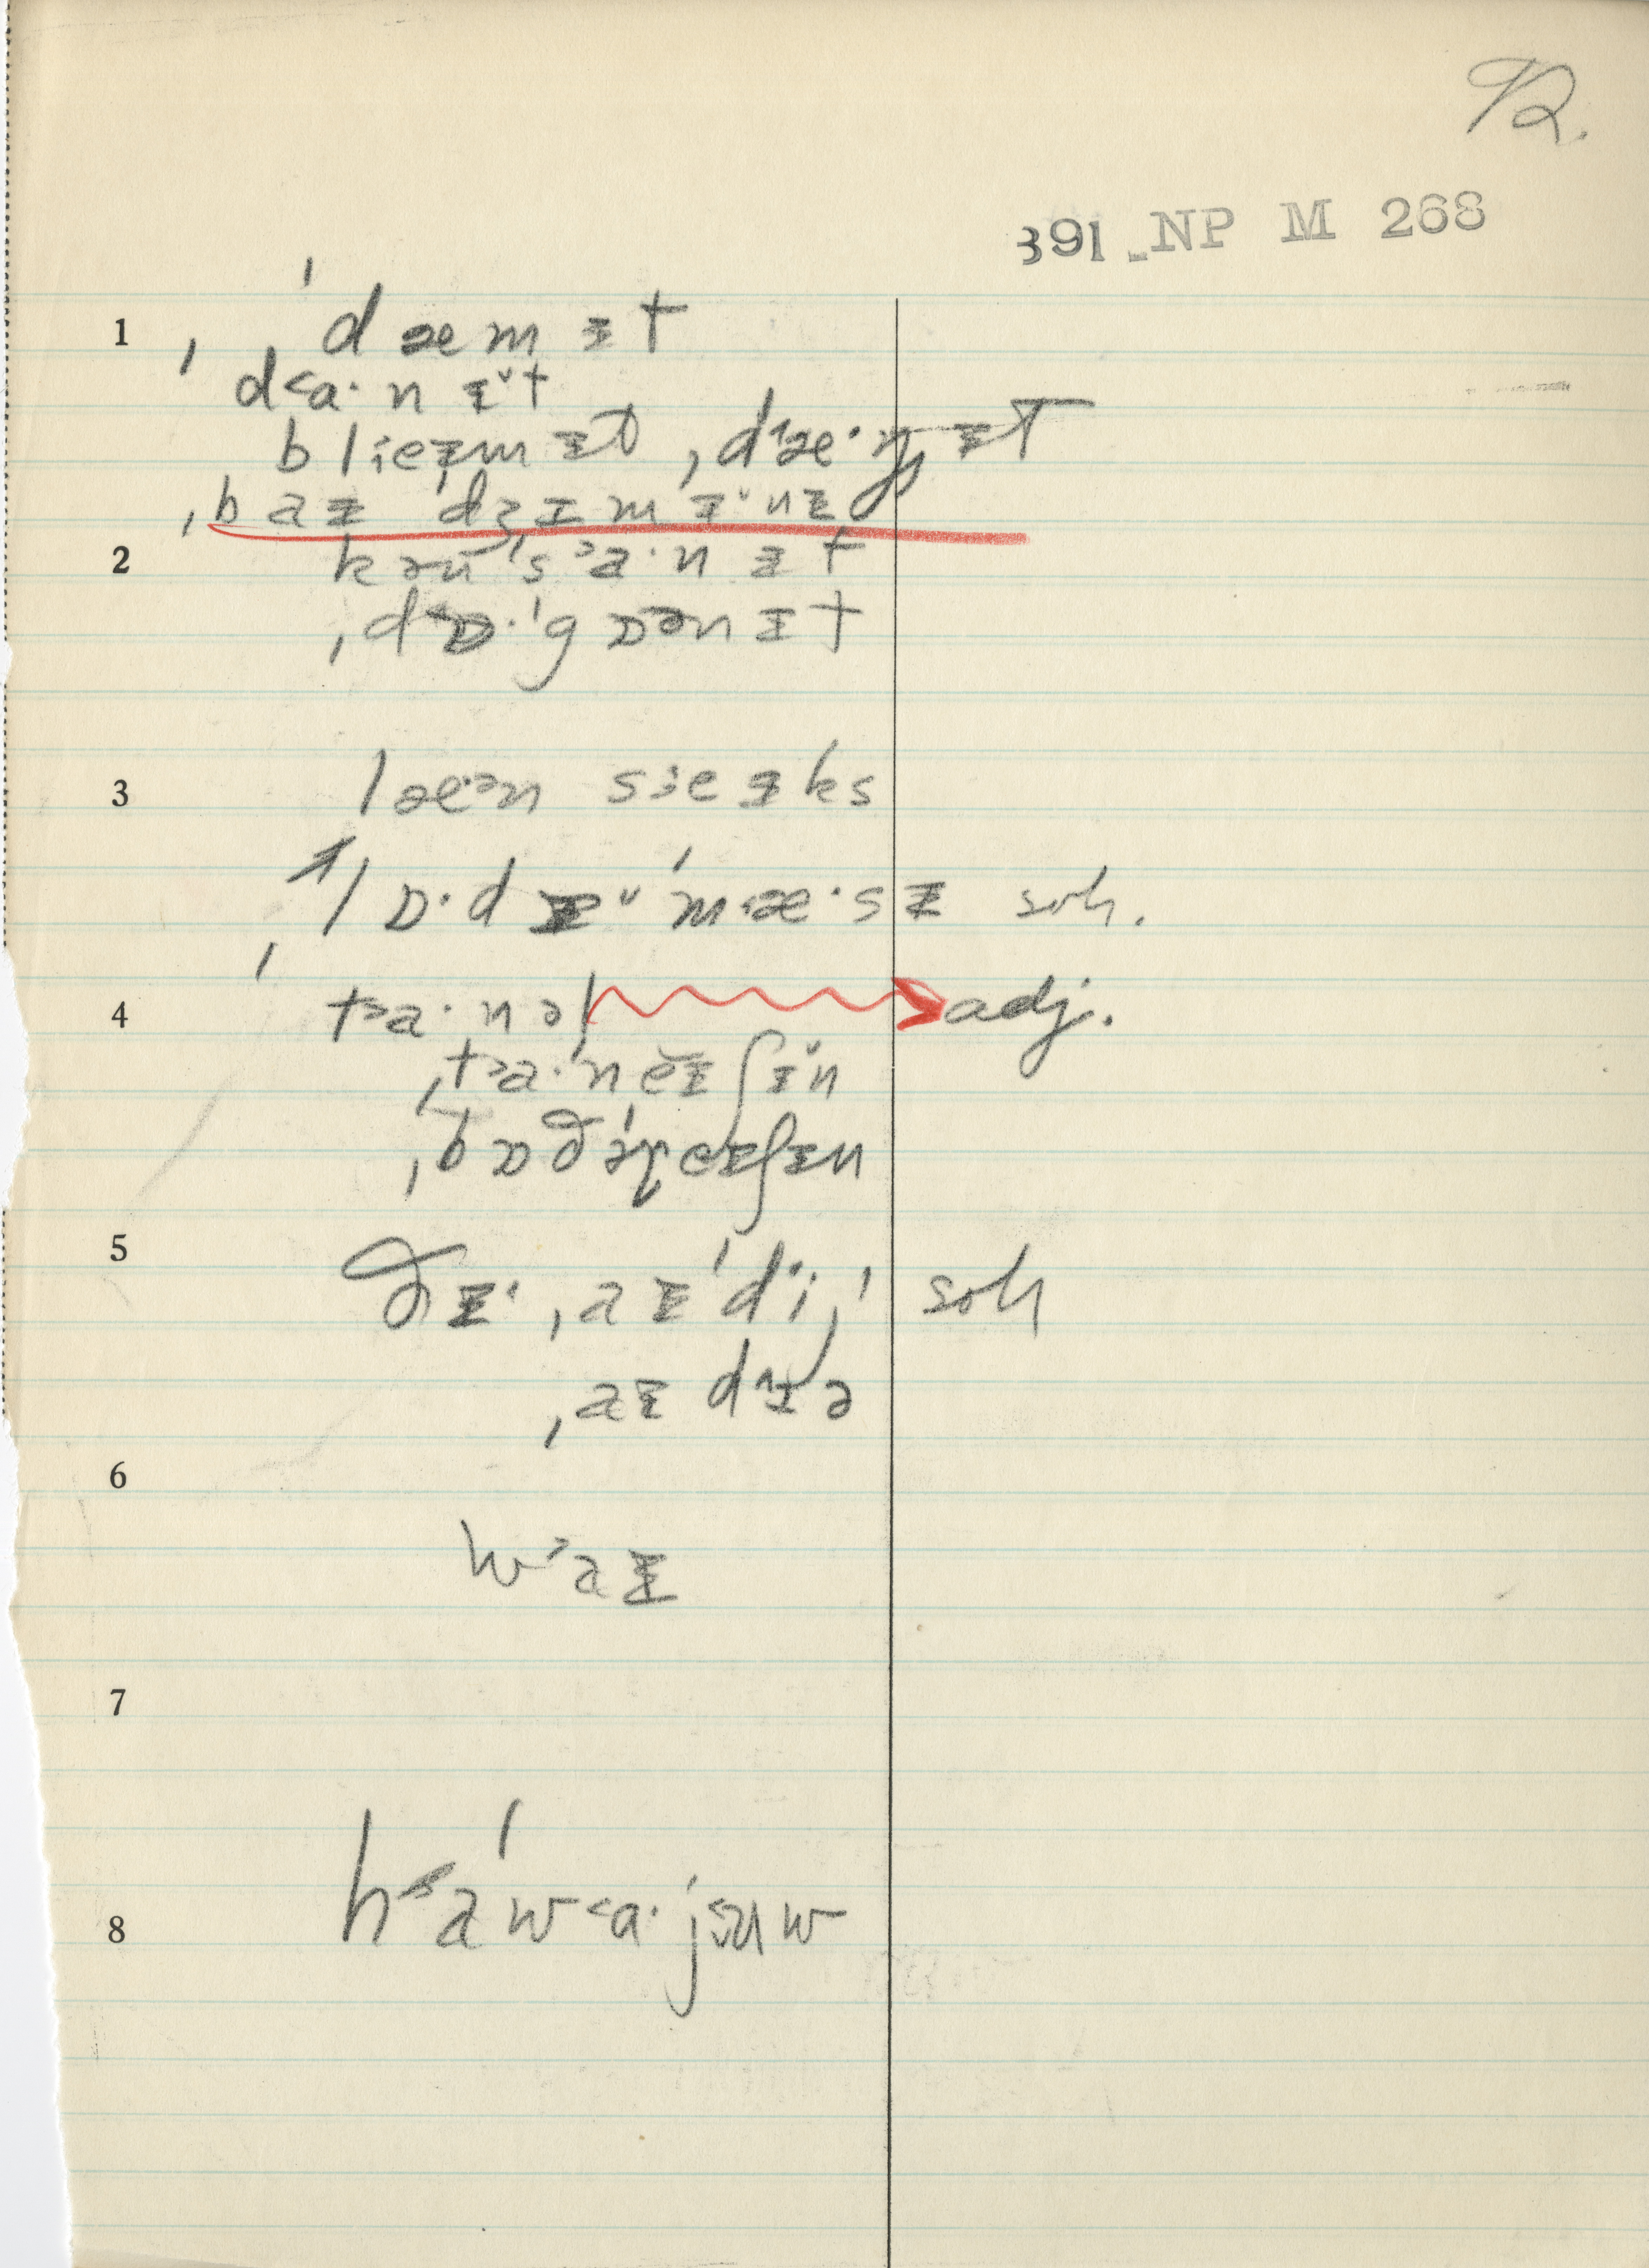 92.
391 NP M 268
1 ˌ ˈdæmɪt
d˂a·nɪ̆t
bliɛɪmɪt ˌdæ·ŋɪt
ˌbaɪ ˈdʒɪmɪ̆nɪ
2 kənˈs˃a·nɪt
ˌdɒ·ˈgɒənɪt
3 læən siɛɪks
ˈlɒ·dɪ̆ ˈmæ·sɪ soh.
4 t˃a·nəl adj.
ˌt˃a·ˈneɪʃɪ̆n
ˌbɒðəˈreɪʃɪn
5 ðɪ· ˌaɪˈdi· soh
ˌaɪ dɪə
6 w˃aɪ
7
8 h˂aˈw˂a·jəuw